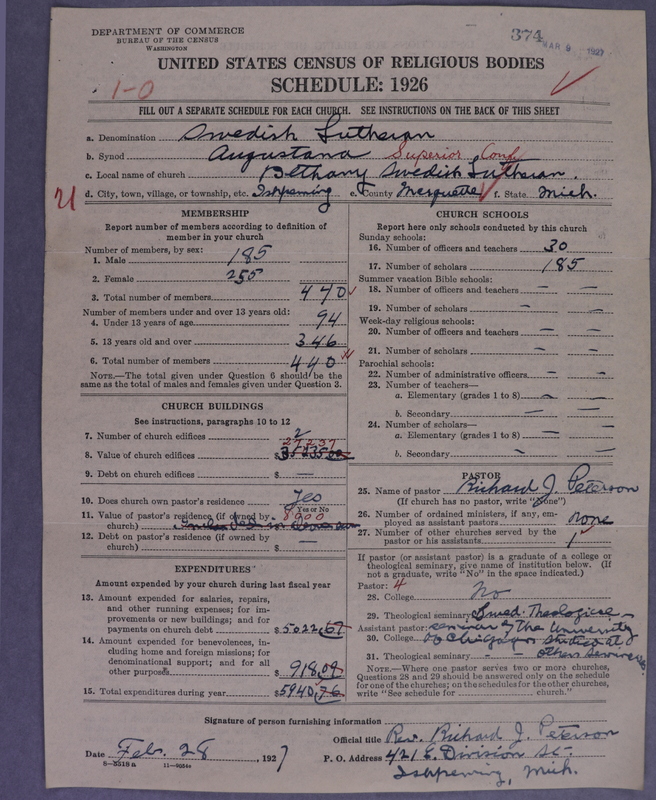 DEPARTMENT OF COMMERCE
BUREAU OF THE CENSUS
WASHINGTON
374
MAR 9 1927
UNITED STATES CENSUS OF RELIGIOUS BODIES
1-0
SCHEDULE: 1926
FILL OUT A SEPARATE SCHEDULE FOR EACH CHURCH. SEE INSTRUCTIONS ON THE BACK OF THIS SHEET
a. Denomination Swedish Lutheran
b. Synod Augustana Superior Conf
c. Local name of church Bethany Swedish Lutheran.
d. City, town, village, or township, etc. Ishpeming e. County Marquette f. State Mich.
MEMBERSHIP
Report number of members according to definition of
member in your church
Number of members, by sex:
1. Male 185
2. Female 255
3. Total number of members 440
Number of members under and over 13 years old:
4. Under 13 years of age 94
5. 13 years old and over 346
6. Total number of members 440
NOTE.—The total given under Question 6 should be the
same as the total of males and females given under Question 3.
CHURCH BUILDINGS
See instructions, paragraphs 10 to 12
7. Number of church edifices 2
27237
8. Value of church edifices $
9. Debt on church edifices $ —
10. Does church own pastor's residence Yes
Yes or No
11. Value of pastor's residence (if owned by
church) 8900
12. Debt on pastor's residence (if owned by
church) $ —
EXPENDITURES
Amount expended by your church during last fiscal year
13. Amount expended for salaries, repairs,
and other running expenses; for im-
provements or new buildings; and for
payments on church debt $ 5022.67
14. Amount expended for benevolences, in-
cluding home and foreign missions; for
denominational support; and for all
other purposes $ 918.09
15. Total expenditures during year $ 5940.76
CHURCH SCHOOLS
Report here only schools conducted by this church
Sunday schools:
16. Number of officers and teachers 30
17. Number of scholars 185
Summer vacation Bible schools:
18. Number of officers and teachers — —
19. Number of scholars — —
Week-day religious schools:
20. Number of officers and teachers — —
21. Number of scholars — —
Parochial schools:
22. Number of administrative officers — —
23. Number of teachers—
a. Elementary (grades 1 to 8) — —
b. Secondary — —
24. Number of scholars—
a. Elementary (grades 1 to 8) — —
b. Secondary — —
PASTOR
25. Name of pastor Richard J. Peterson
(If church has no pastor, write "None")
26. Number of ordained ministers, if any, em-
ployed as assistant pastors none
27. Number of other churches served by the
pastor or his assistants 1
If pastor (or assistant pastor) is a graduate of a college or
theological seminary, give name of institution below. (If
not a graduate, write "No" in the space indicated.)
Pastor: 4
28. College No
29. Theological seminary Swed. Theological
Assistant pastor: seminary of The University
30. College of Chicago studied at
31. Theological seminary — — other
NOTE.—Where one pastor serves two or more churches,
Questions 28 and 29 should be answered only on the schedule
for one of the churches; on the schedules for the other churches,
write "See schedule for church."
Signature of person furnishing information
Official title Rev. Richard J. Peterson
Date Feb. 28, 1927
P. O. Address 421 E. Division St.
8—3518a 11—9054a
Ishpeming, Mich.